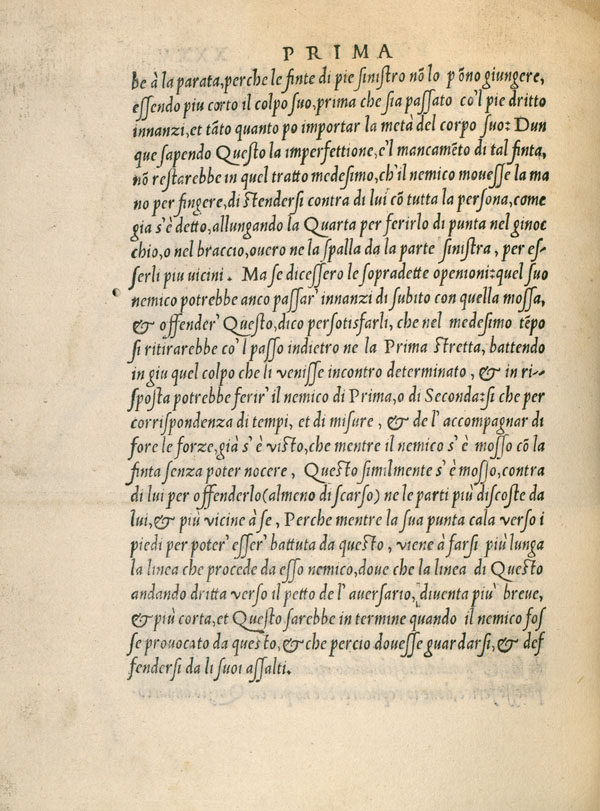 PRIMA
be à la parata, perche le finte di pie sinistro nõ lo põno giungere,
essendo piu corto il colpo suo, prima che sia passato co'l pie dritto
innanzi, et tãto quanto po importar la metà del corpo suo: Dun
que sapendo Questo la imperfettione, e'l mancamẽto di tal finta,
nõ restarebbe in quel tratto medesimo, ch'il nemico mouesse la ma
no per fingere, di stendersi contra di lui cõ tutta la persona, come
gia s'è detto, allungando la Quarta per ferirlo di punta nel ginoc
chio, o nel braccio, ouero ne la spalla da la parte sinistra, per es-
serli piu vicini. Ma se dicessero le sopradette openioni: quel suo
nemico potrebbe anco passar' innanzi di subito con quella mossa,
& offender' Questo, dico persotisfarli, che nel medesimo tẽpo
si ritirarebbe co'l passo indietro ne la Prima stretta, battendo
in giu quel colpo che li venisse incontro determinato, & in ri-
sposta potrebbe ferir' il nemico di Prima, o di Seconda: si che per
corrispondenza di tempi, et di misure, & de l'accompagnar di
fore le forze, già s'è visto, che mentre il nemico s'è mosso cõ la
finta senza poter nocere, Questo similmente s'è mosso, contra
di lui per offenderlo (almeno di scarso) ne le parti più discoste da
lui, & più vicine à se, Perche mentre la sua punta cala verso i
piedi per poter' esser' battuta da questo, viene à farsi più lunga
la linea che procede da esso nemico, doue che la linea di Questo
andando dritta verso il petto de l'auersario, diuenta più breue,
& più corta, et Questo sarebbe in termine quando il nemico fos
se prouocato da questo, & che percio douesse guardarsi, & def
fendersi da li suoi assalti.